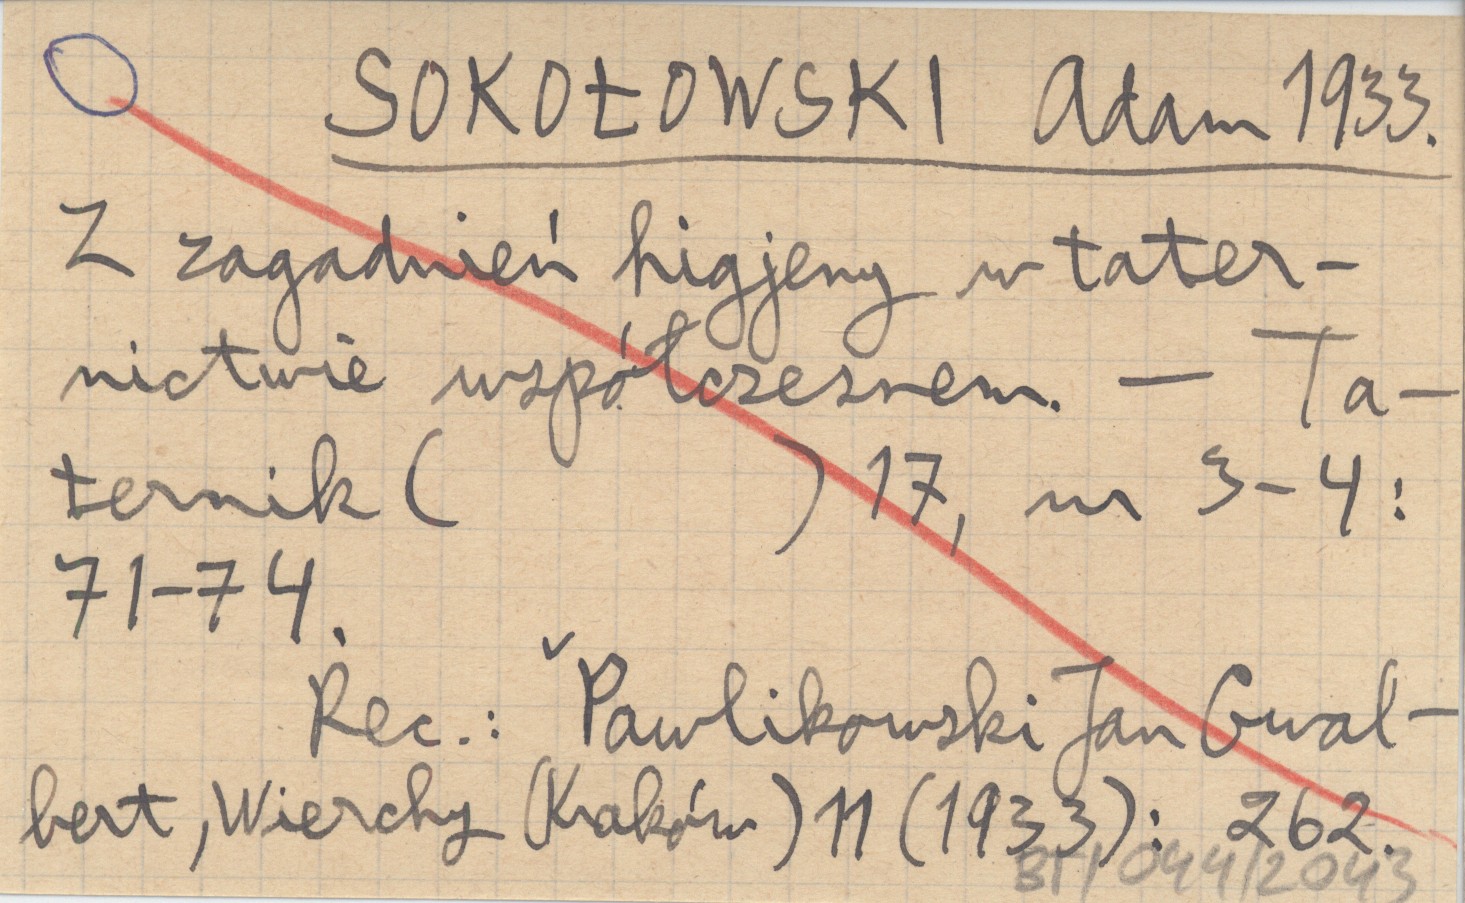 SOKOŁOWSKI Adam 1933.
Z zagadnień higjeny w tater-
nictwie współczesnem. — Ta-
ternik (          ) 17, nr 3-4:
71-74.
Rec.: Pawlikowski Jan Gwal-
bert, Wierchy (Kraków) 11 (1933): 262.
BT/044/2043